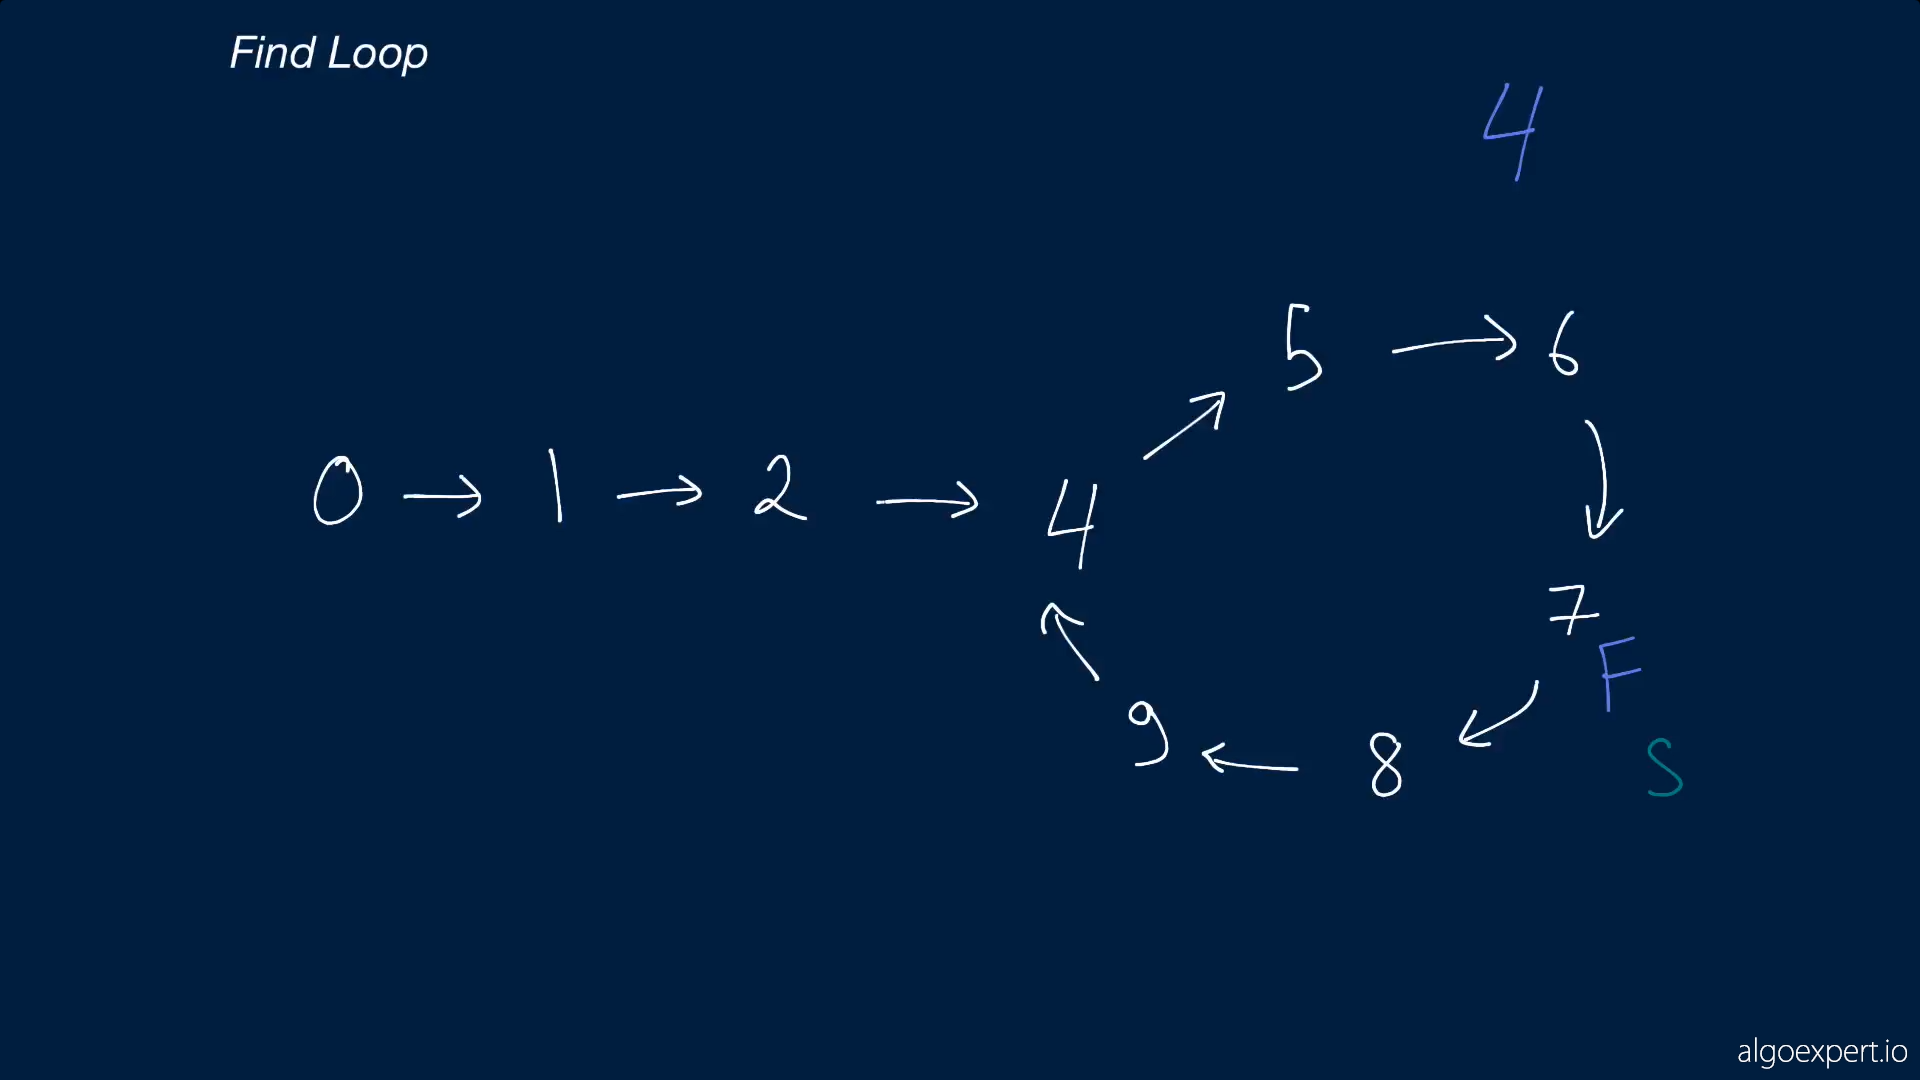 Find Loop
4
5 → 6
0 → 1 → 2 → 4
7
F
9 ← 8
S
algoexpert.io